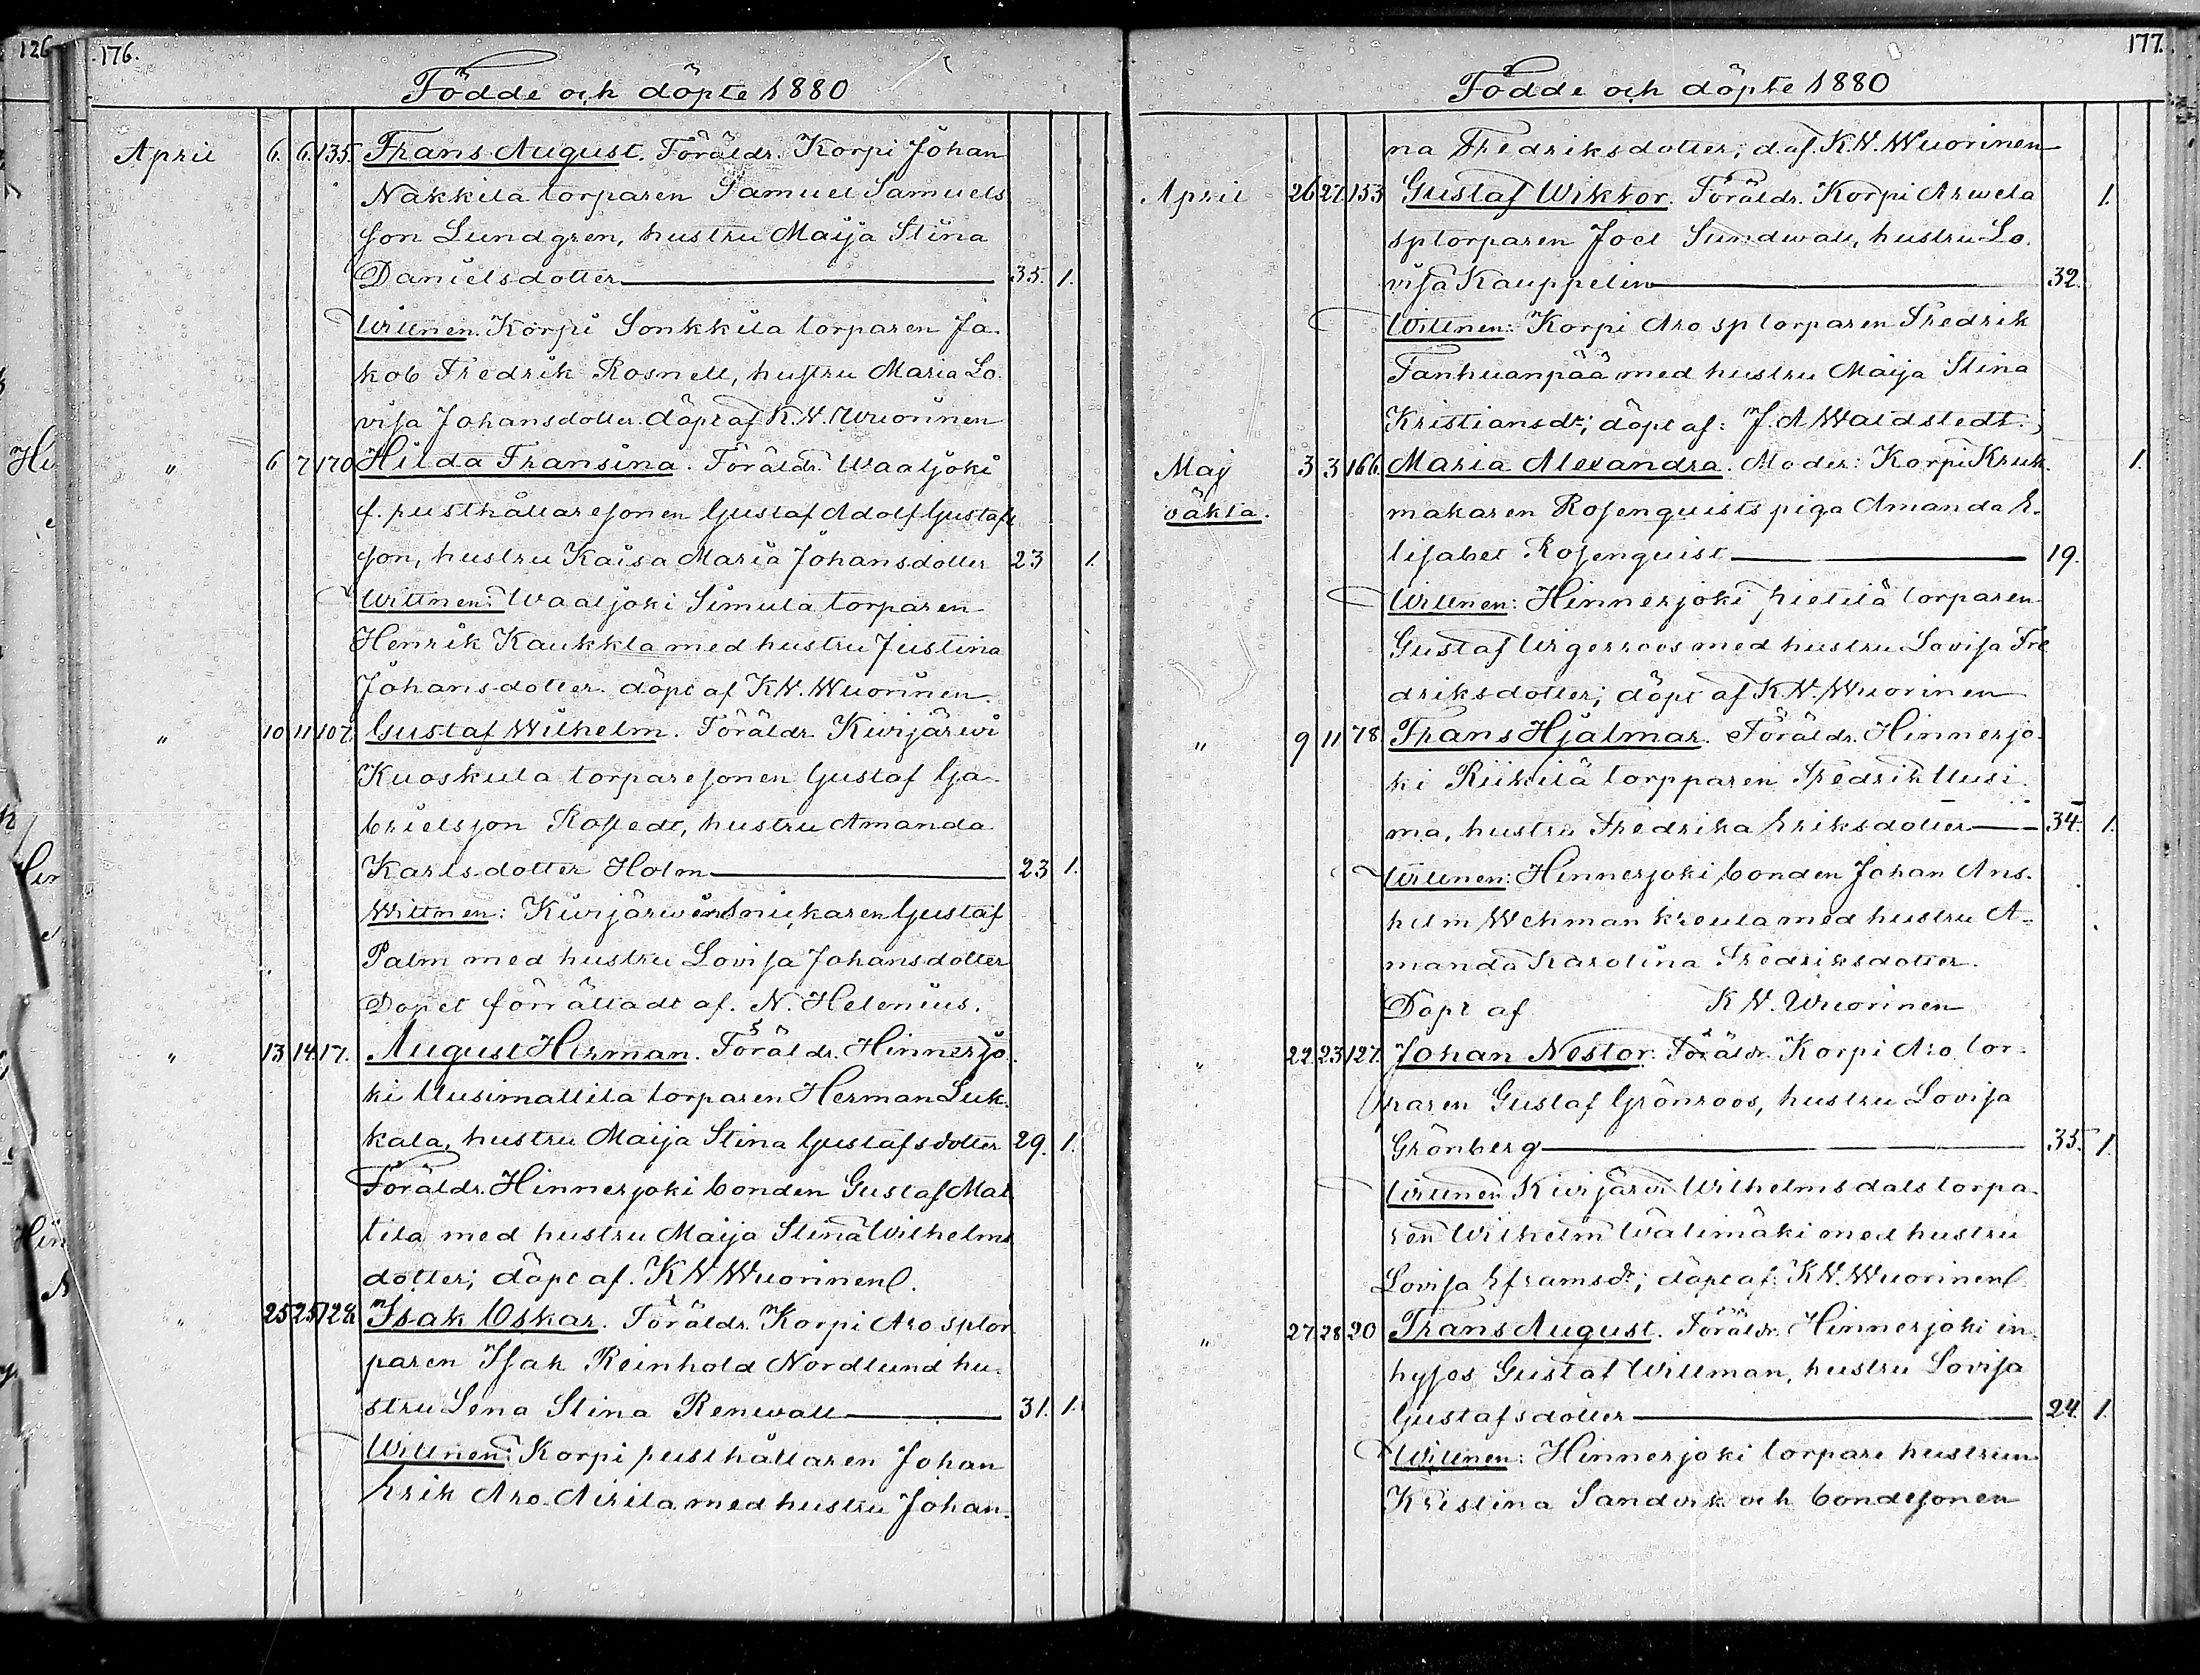 126
176.
Födde och döpte 1880
April 6. 6. 135. Frans August. Föräldr. Korpi Johan
Nakkila torparen Samuel Samuels
son Lundgren, hustru Maija Stina
Danielsdotter 35. 1.
Wittnen. Korpi Sonkkila torparen Ja-
kob Fredrik Rosnell, hustru Maria Lo-
visa Johansdotter. döpt af K.N. Wuorinen
" 6 7 170 Hilda Fransina. Föräldr. Waaljoki
f. rusthållaresonen Gustaf Adolf Gustafs
son, hustru Kaisa Maria Johansdotter 23 1.
Wittnen: Waaljoki Simula torparen
Henrik Kaukkla med hustru Justina
Johansdotter. döpt af K.N. Wuorinen.
" 10 11 107. Gustaf Wilhelm. Föräldr. Kivijärwi
Kuoskula torparesonen Gustaf Ga-
brielsson Rostedt, hustru Amanda
Karlsdotter Holm 23 1.
Wittnen: Kivijärwi Snickaren Gustaf
Palm med hustru Lovisa Johansdotter
Dopet förrättadt af. N. Helenius.
" 13 14 17. August Herman. Föräldr. Hinnerjo-
ki Uusimattila torparen Herman Luk-
kala, hustru Maija Stina Gustafsdotter 29. 1.
Föräldr. Hinnerjoki bonden Gustaf Mat
tila med hustru Maija Stina Wilhelms
dotter; döpt af. K.N. Wuorinen.
" 25 25 128. Isak Oskar. Föräldr. Korpi Aro sptor
paren Isak Reinhold Nordlund hu-
stru Lena Stina Renwall 31. 1.
Wittnen: Korpi rusthållaren Johan
Erik Aro Airila med hustru Johan-
177.
Födde och döpte 1880
na Fredriksdotter; d. af. K.N. Wuorinen
April 26 27 153 Gustaf Wiktor. Föräldr. Korpi Arwela 1.
sptorparen Joel Sundwall, hustru Lo-
visa Kauppelin 32.
Wittnen: Korpi Aro sptorparen Fredrik
Tanhuanpää med hustru Maija Stina
Kristiansdr; döpt af: J. A Waldstedt.
Maj 3 3 166. Maria Alexandra. Moder: Korpi Kruk- 1.
oäkta. makaren Rosenquists piga Amanda E-
lisabet Rosenquist 19.
Wittnen: Hinnerjoki hietilä torparen
Gustaf Wigerroos med hustru Lovisa Fre
driksdotter; döpt af K.N. Wuorinen
" 9 11 78 Frans Hjalmar. Föräldr. Hinnerjo-
ki Riikilä torpparen Fredrik Uusi
ma, hustru Fredrika Eriksdotter 34. 1.
Wittnen: Hinnerjoki bonden Johan Ans-
helm Wehman kreula med hustru A-
manda Karolina Fredriksdotter.
Döpt af K N. Wuorinen
" 22 23 127. Johan Nestor. Föräldr. Korpi Aro tor-
paren Gustaf Grönroos, hustru Lovisa
Grönberg 35. 1.
Wittnen Kivijärvi Wilhelmsdals torpa
ren Wilhelm Wälimäki med hustru
Lovisa Eframsdr; döpt af: K.N. Wuorinen
" 27 28 20 Frans August. Föräldr. Hinnerjoki in-
hyses Gustaf Willman, hustru Lovisa
Gustafsdotter 24. 1.
Wittnen: Hinnerjoki torpare hustrun
Kristina Sandvik och bondesonen